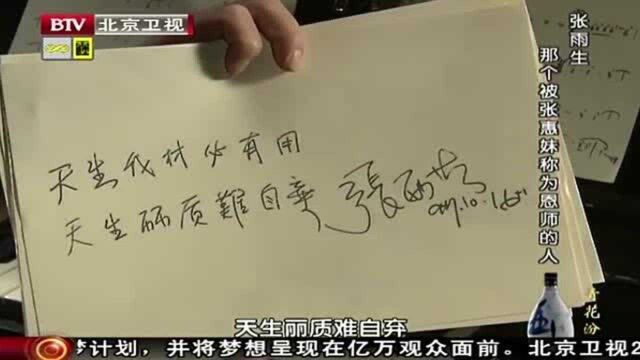 BTV 北京卫视
张雨生
那个被张惠妹称为恩师的人
天生我材必有用
天生丽质難自棄
天生丽质难自弃
青花汾
梦计划，并将梦想呈现在亿万观众面前。北京卫视